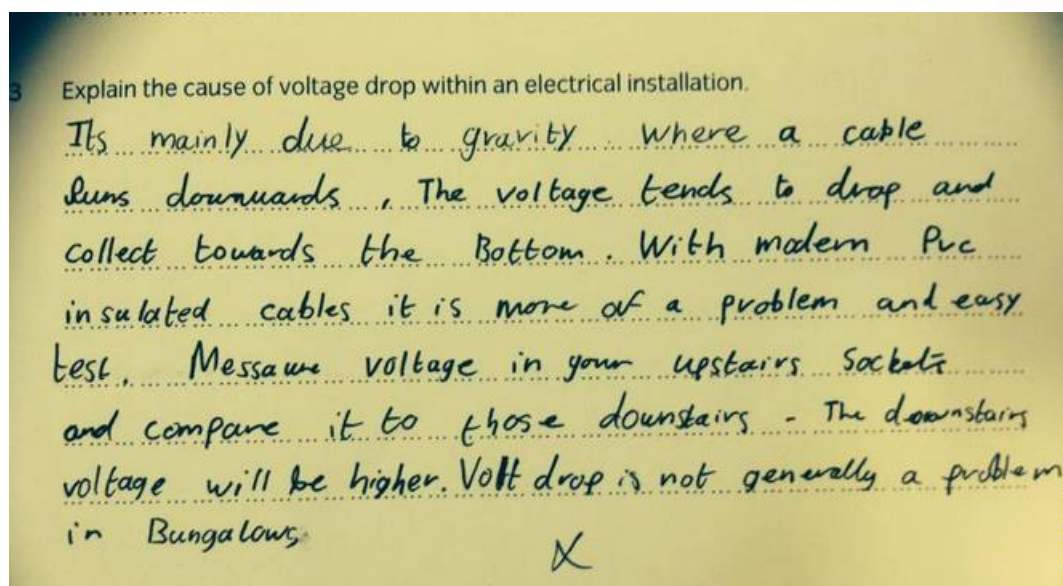 3 Explain the cause of voltage drop within an electrical installation.
Its mainly due to gravity where a cable
Runs downwards, The voltage tends to drop and
collect towards the Bottom. With modern Pvc
insulated cables it is more of a problem and easy
test. Messaure voltage in your upstairs Sockets
and compare it to those downstairs - The downstairs
voltage will be higher. Volt drop is not generally a problem
in Bungalows
X